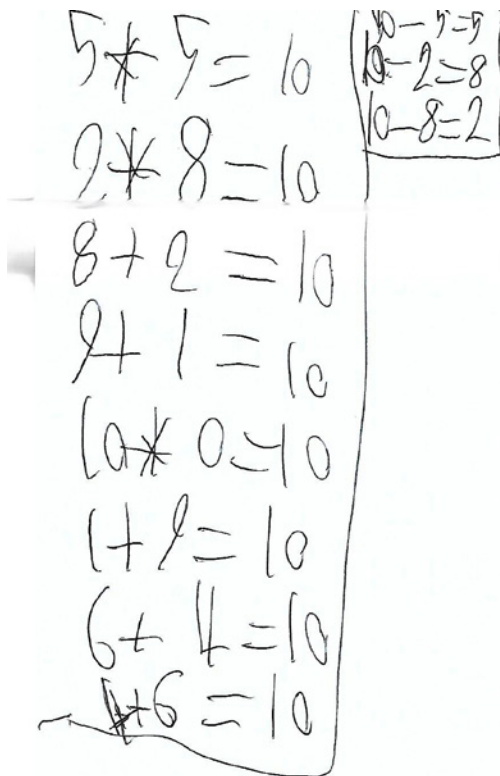 5*5=10
2*8=10
8+2=10
9+1=10
10*0=10
1+9=10
6+4=10
4+6=10
10-5=5
10-2=8
10-8=2